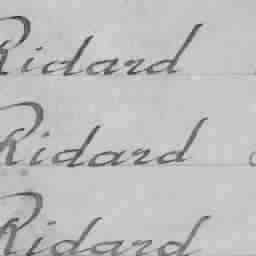 Ridard
Ridard
Ridard